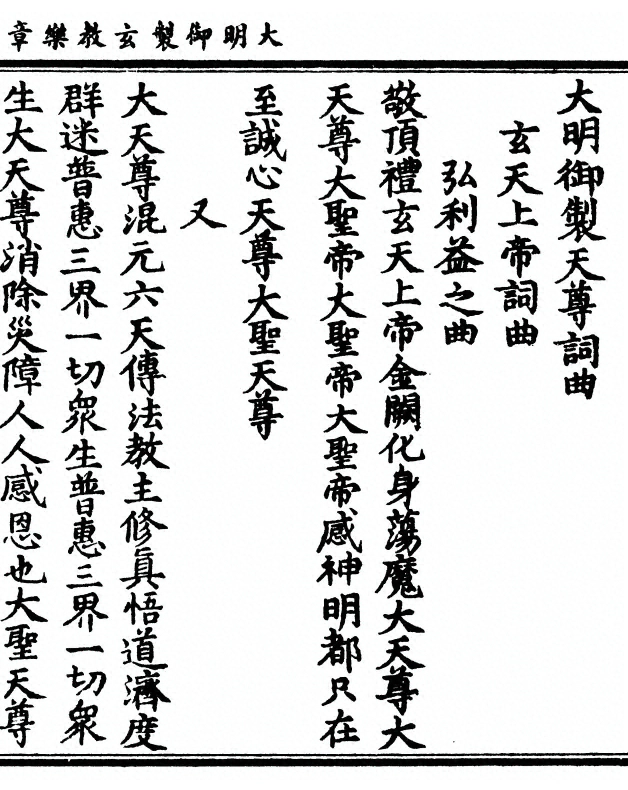 大明御製玄教樂章
大明御製天尊詞曲
玄天上帝詞曲
弘利益之曲
敬頂禮玄天上帝金闕化身蕩魔大天尊大
天尊大聖帝大聖帝大聖帝感神明都只在
至誠心天尊大聖天尊
又
大天尊混元六天傳法教主修眞悟道濟度
群迷普惠三界一切衆生普惠三界一切衆
生大天尊消除災障人人感恩也大聖天尊